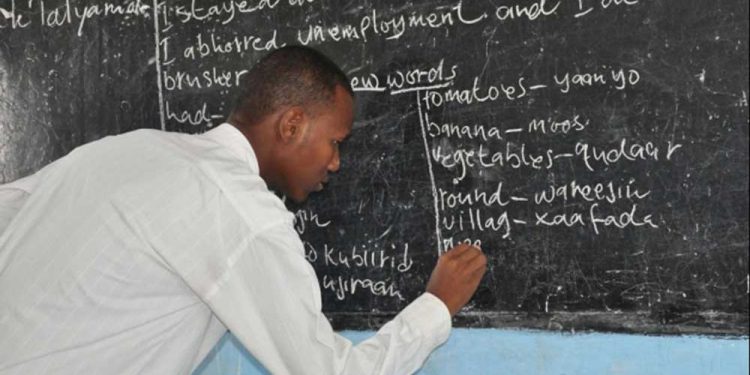 i stayed
I abhorred unemployment and I
new words
had-
tomatoes - yaanyo
banana - moos.
vegetables - qudaar
round - wareejin
villag - xaafada
kubiirid
ujiraan